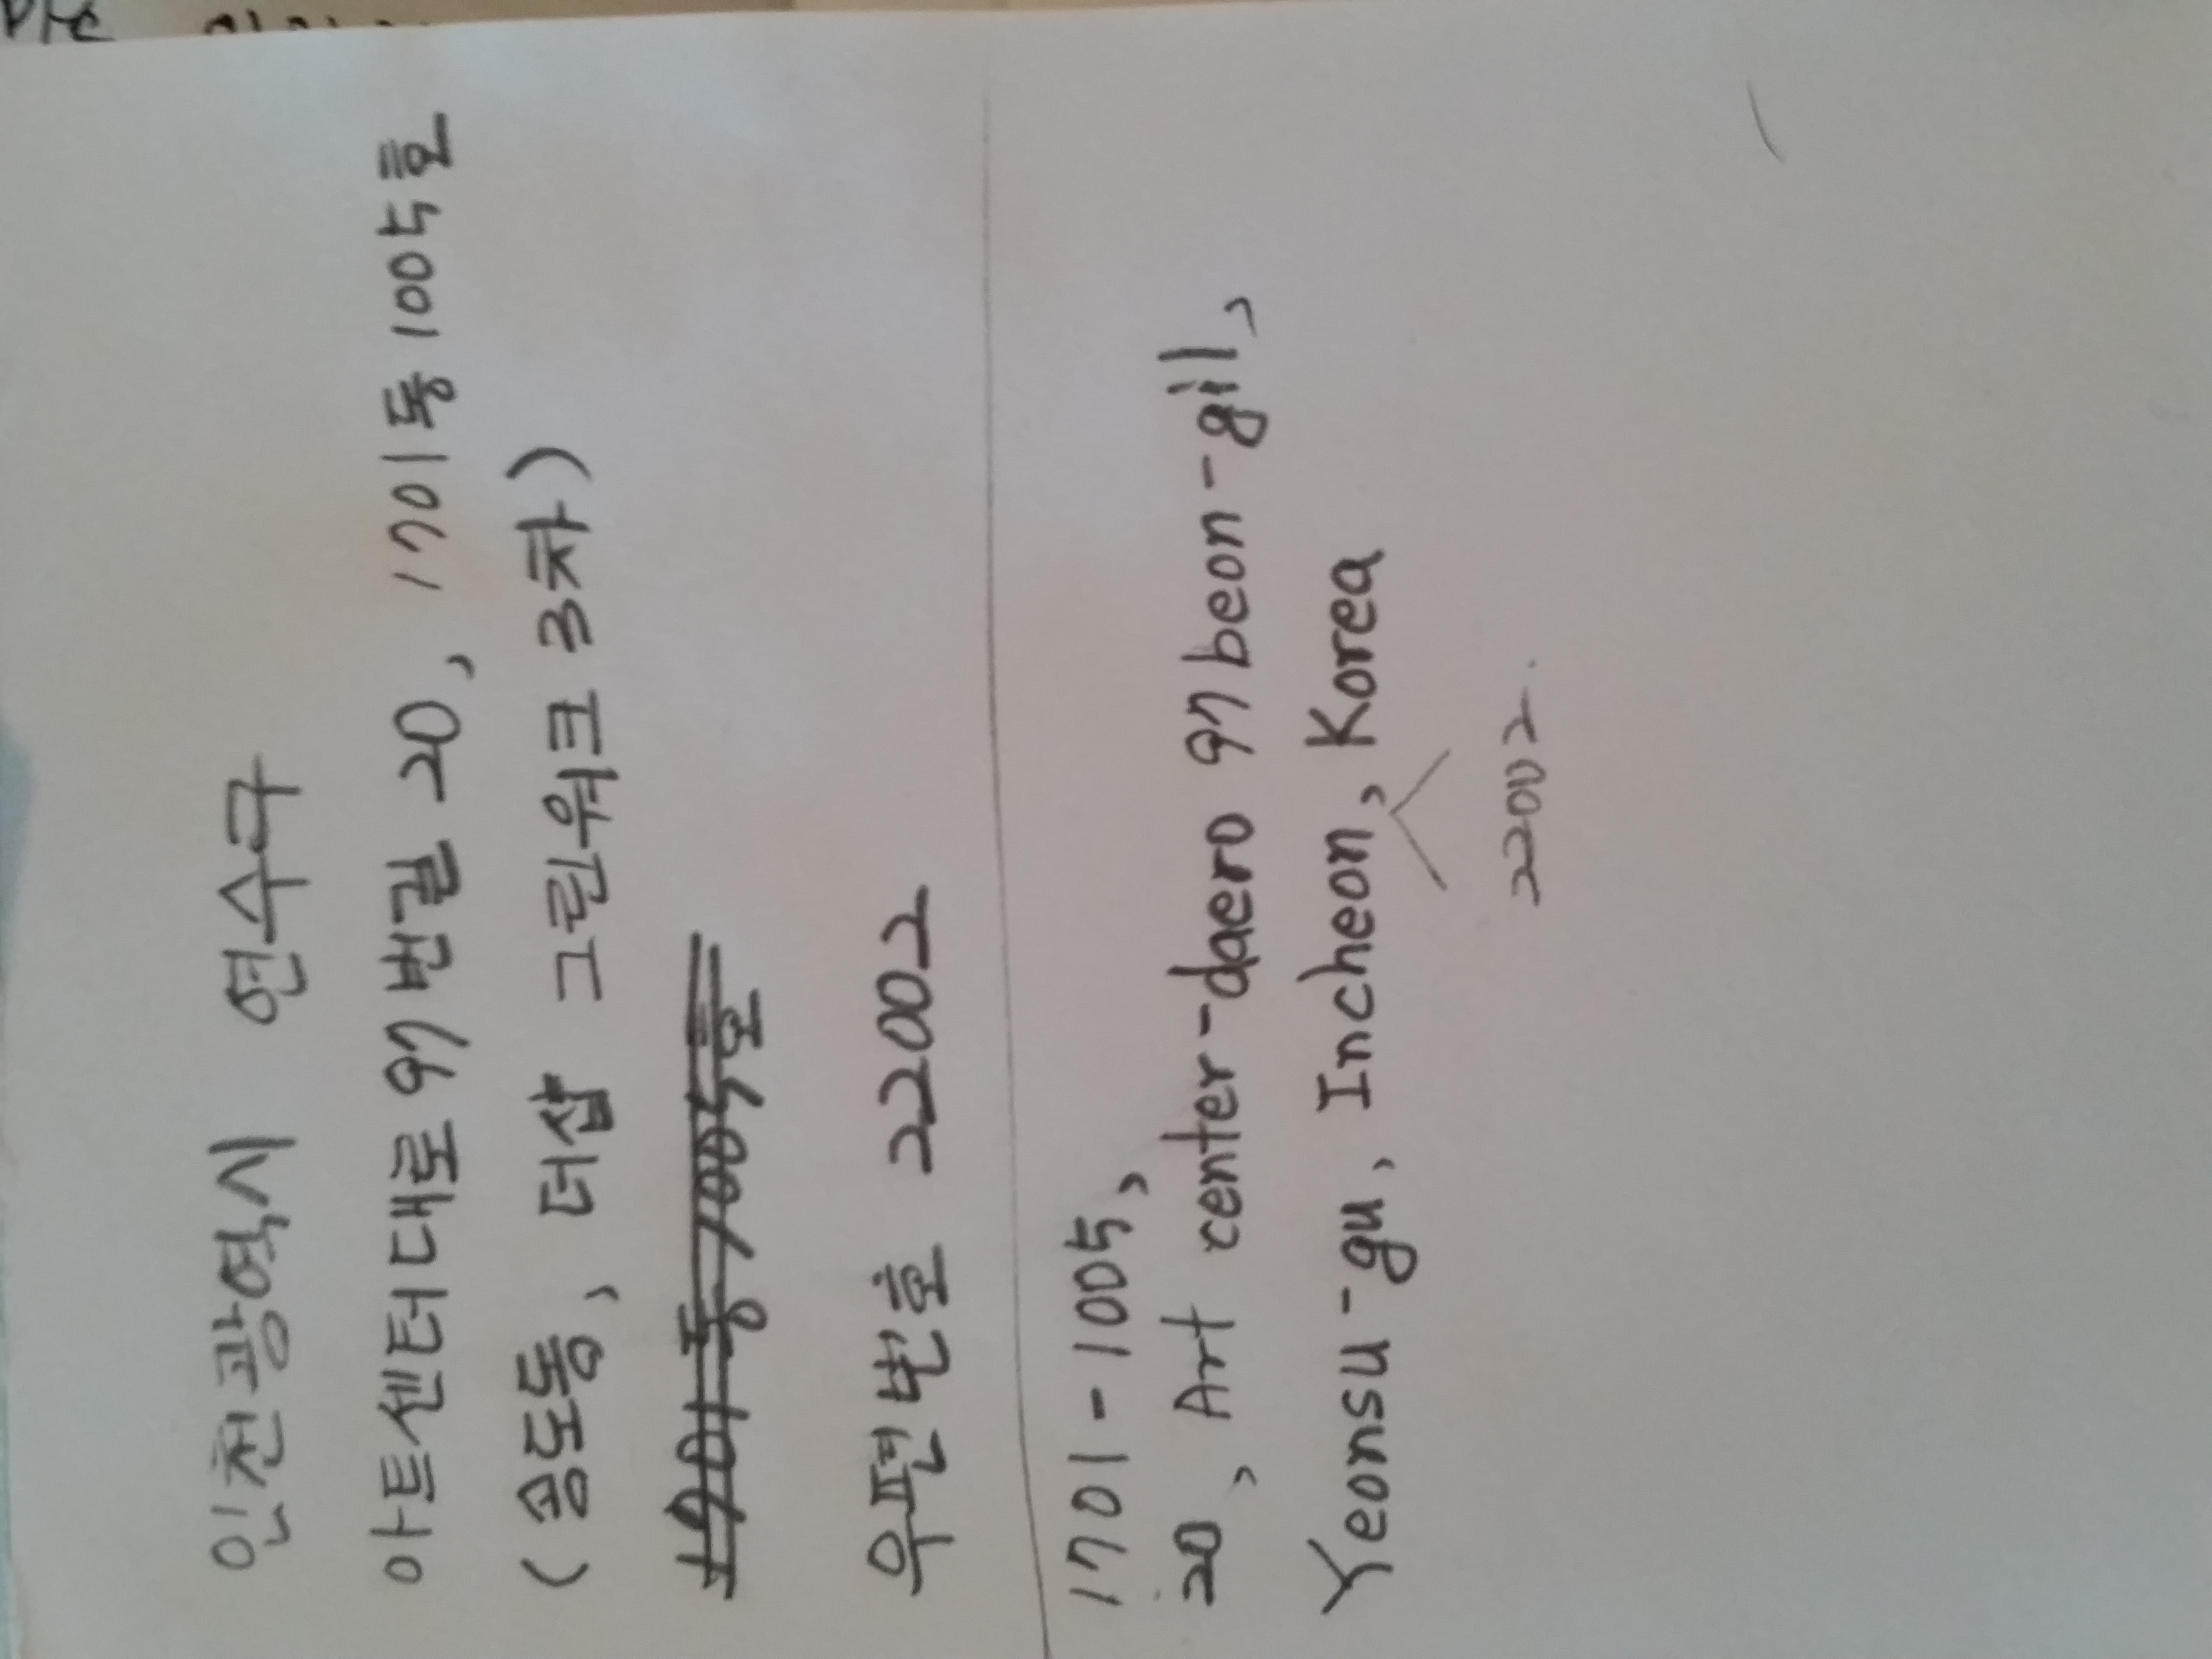 인천광역시 연수구
아트센터대로 97번길 20, 1701동 1005호
(송도동, 더샵 그린워크 3차)
1701동 1005호
우편번호 22002
1701-1005,
20, Art center-daero 97beon-gil,
Yeonsu-gu, Incheon, Korea
22002